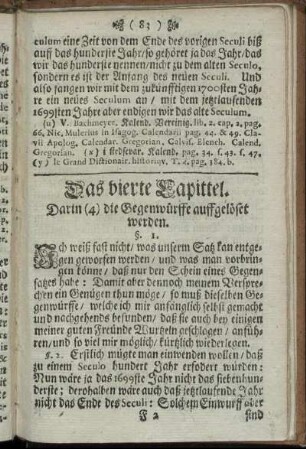 ( 83 )
culum eine Zeit von dem Ende des vorigen Seculi biß
auf das hunderste Jahr/ so gehöret ja das Jahr/ das
wir das hunderste nennen/ nicht zu dem alten Seculo,
sondern es ist der Anfang des neüen Seculi. Und
also fangen wir mit dem zukünfftigen 1700sten Jah-
re ein neües Seculum an/ mit dem jetztlaufenden
1699sten Jahre aber endigen wir das alte Seculum.
(u) V. Bachmeyer. Kalend. Breinitz. lib. 2. cap. 2. pag.
66. Nic, Mulerius in Isagog. Calendarii pag. 44. & 49. Cla-
vii Apolog, Calendar. Gregorian, Calvis. Elench. Calend.
Gregorian. (x) pag. 34. f. 43. f. 47,
(y) le Grand Dictionair. historiqv. T. 4. pag. 184. b.
Das vierte Capittel.
Darin (4) die Gegenwürffe auffgelöset
werden.
§. 1.
Ich weiß fast nicht/ was unserm Satz kan entge-
gen geworfen werden/ und was man vorbrin-
gen könne/ daß nur den Schein eines Gegen-
satzes habe: Damit aber dennoch meinem Verspre-
chen ein Genügen thun möge/ so muß dieselben Ge-
genwürffe/ welche ich mir anfänglich selbst gemacht
und nachgehends befunden/ daß sie auch bey einigen
meiner guten Freünde Wurtzeln geschlagen/ anfüh-
ren/ und so viel mir möglich/ kürtzlich wiederlegen.
§. 2. Erstlich mügte man einwenden wollen/ daß
zu einem Seculo hundert Jahr erfodert würden:
Nun wäre ja das 1699ste Jahr nicht das siebenhun-
derste; derohalben wäre auch das jetztlaufende Jahr
nicht das Ende des Seculi: Solchem Einwurff aber
F 2 sind